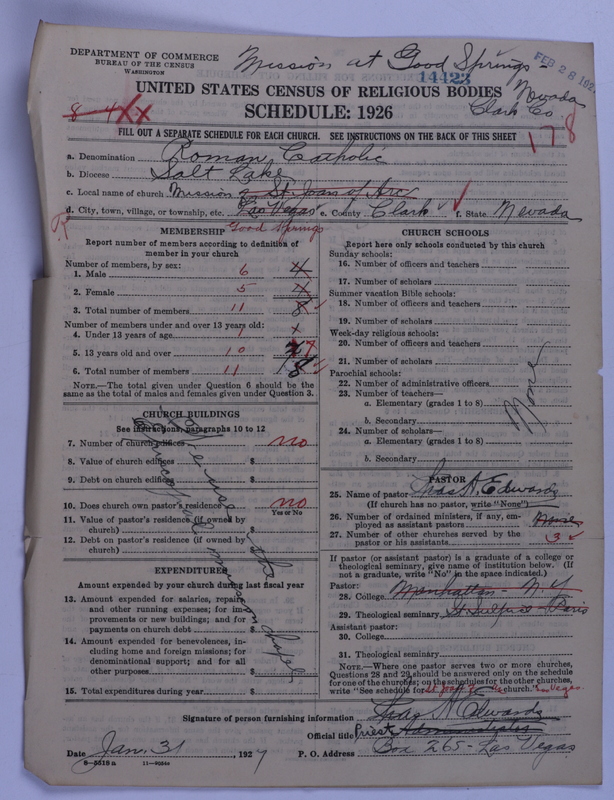 DEPARTMENT OF COMMERCE
BUREAU OF THE CENSUS
WASHINGTON
Mission at Good Springs -
Nevada
Clark Co
FEB 28 192
14423
UNITED STATES CENSUS OF RELIGIOUS BODIES
SCHEDULE: 1926
178
FILL OUT A SEPARATE SCHEDULE FOR EACH CHURCH. SEE INSTRUCTIONS ON THE BACK OF THIS SHEET
a. Denomination Roman Catholic
b. Diocese Salt Lake
c. Local name of church Mission St. Joan of Arc
d. City, town, village, or township, etc. Las Vegas e. County Clark f. State Nevada
Good Springs
R
MEMBERSHIP
Report number of members according to definition of
member in your church
Number of members, by sex:
1. Male 6 4
2. Female 5
3. Total number of members 11 8
Number of members under and over 13 years old:
4. Under 13 years of age 1
5. 13 years old and over 10
6. Total number of members 11 8
NOTE.—The total given under Question 6 should be the
same as the total of males and females given under Question 3.
CHURCH BUILDINGS
See instructions, paragraphs 10 to 12
7. Number of church edifices no
8. Value of church edifices $
9. Debt on church edifices $
10. Does church own pastor's residence no
Yes or No
11. Value of pastor's residence (if owned by
church) $
12. Debt on pastor's residence (if owned by
church) $
EXPENDITURES
Amount expended by your church during last fiscal year
13. Amount expended for salaries, repairs,
and other running expenses; for im-
provements or new buildings; and for
payments on church debt $
14. Amount expended for benevolences, in-
cluding home and foreign missions; for
denominational support; and for all
other purposes $
15. Total expenditures during year $
CHURCH SCHOOLS
Report here only schools conducted by this church
Sunday schools:
16. Number of officers and teachers
17. Number of scholars
Summer vacation Bible schools:
18. Number of officers and teachers
19. Number of scholars
Week-day religious schools:
20. Number of officers and teachers
21. Number of scholars
Parochial schools:
22. Number of administrative officers
23. Number of teachers—
a. Elementary (grades 1 to 8)
b. Secondary
24. Number of scholars—
a. Elementary (grades 1 to 8)
b. Secondary
None
PASTOR
25. Name of pastor Chas. N. Edwards
(If church has no pastor, write "None")
26. Number of ordained ministers, if any, em-
ployed as assistant pastors None
27. Number of other churches served by the
pastor or his assistants 3
If pastor (or assistant pastor) is a graduate of a college or
theological seminary, give name of institution below. (If
not a graduate, write "No" in the space indicated.)
Pastor:
28. College Manhattan - N.Y
29. Theological seminary St Sulpice Paris
Assistant pastor:
30. College
31. Theological seminary
NOTE.—Where one pastor serves two or more churches,
Questions 28 and 29 should be answered only on the schedule
for one of the churches; on the schedules for the other churches,
write "See schedule for St Joan of Arc church." Las Vegas
Signature of person furnishing information Chas N Edwards
Official title Priest Administrator
Date Jan. 31 1927 P. O. Address Box 265 - Las Vegas
8-5518a 11-9034a